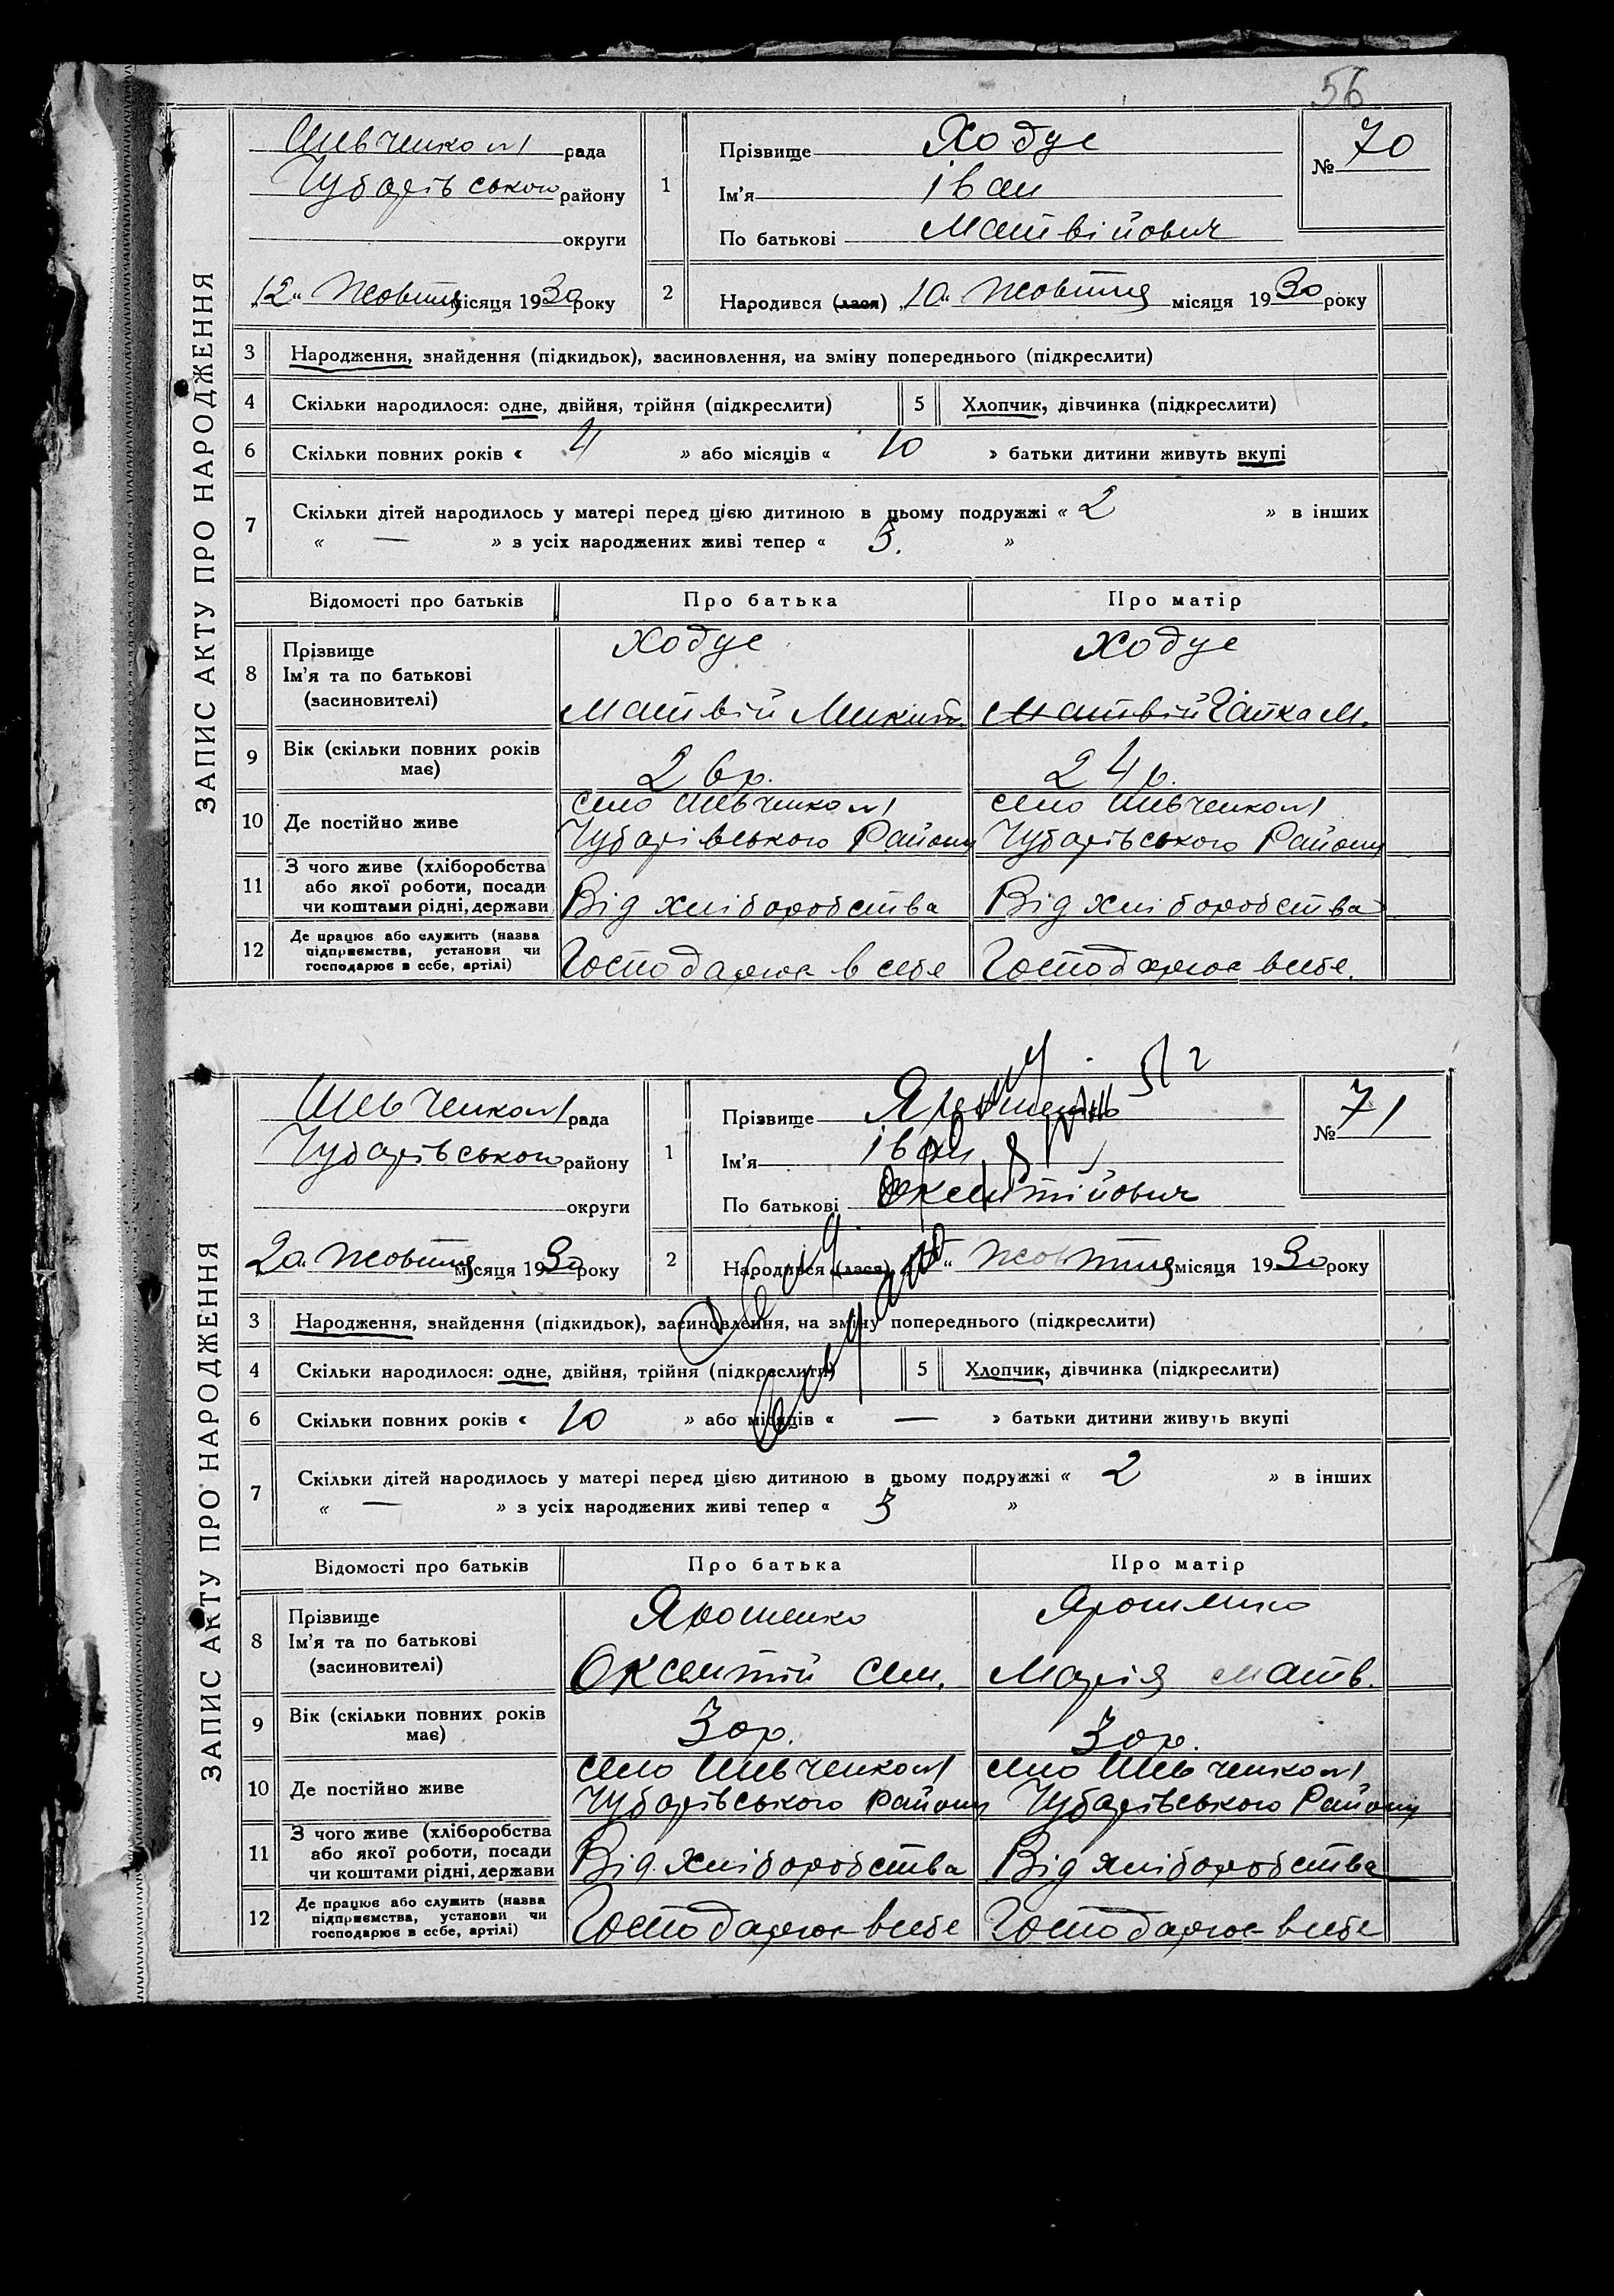 56
ЗАПИС АКТУ ПРО НАРОДЖЕННЯ
Шевченко №1 рада
Чубарівського району
округи
„12“ Жовтня місяця 1930 року
1
Прізвище Ходус
Ім'я Іван
По батькові Матвійович
№ 70
2
Народився (лася) „10“ Жовтня місяця 1930 року
3 Народження, знайдення (підкидьок), засиновлення, на зміну попереднього (підкреслити)
4 Скільки народилося: одне, двійня, трійня (підкреслити)
5 Хлопчик, дівчинка (підкреслити)
6 Скільки повних років « 4 » або місяців « 10 » батьки дитини живуть вкупі
7 Скільки дітей народилось у матері перед цією дитиною в цьому подружжі « 2 » в інших
« — » з усіх народжених живі тепер « 3. »
Відомості про батьків Про батька Про матір
8 Прізвище
Ім'я та по батькові
(засиновителі)
Ходус
Матвій Микит.
Ходус
Матвій М.
9 Вік (скільки повних років
має)
26р.
24р.
10 Де постійно живе
село Шевченко №1
Чубарівського Району
село Шевченко №1
Чубарівського Району
11 З чого живе (хліборобства
або якої роботи, посади
чи коштами рідні, держави
Від хліборобства
Від хліборобства
12 Де працює або служить (назва
підприємства, установи чи
господарює в себе, артілі)
Господарює в себе
Господарює в себе.
ЗАПИС АКТУ ПРО НАРОДЖЕННЯ
Шевченко №1 рада
Чубарівського району
округи
„20“ Жовтня місяця 1930 року
1
Прізвище Ярошенко
Ім'я Іван
По батькові Оксентійович
№ 71
2
Народився (лася) Жовтня місяця 1930 року
3 Народження, знайдення (підкидьок), засиновлення, на зміну попереднього (підкреслити)
4 Скільки народилося: одне, двійня, трійня (підкреслити)
5 Хлопчик, дівчинка (підкреслити)
6 Скільки повних років « 10 » або місяців « — » батьки дитини живуть вкупі
7 Скільки дітей народилось у матері перед цією дитиною в цьому подружжі « 2 » в інших
« — » з усіх народжених живі тепер « 3 »
Відомості про батьків Про батька Про матір
8 Прізвище
Ім'я та по батькові
(засиновителі)
Ярошенко
Оксентій Сем.
Ярошенко
Марія Матв.
9 Вік (скільки повних років
має)
30р.
30р.
10 Де постійно живе
село Шевченко №1
Чубарівського Району
село Шевченко №1
Чубарівського Району
11 З чого живе (хліборобства
або якої роботи, посади
чи коштами рідні, держави
Від хліборобства
Від хліборобства
12 Де працює або служить (назва
підприємства, установи чи
господарює в себе, артілі)
Господарює в себе
Господарює в себе